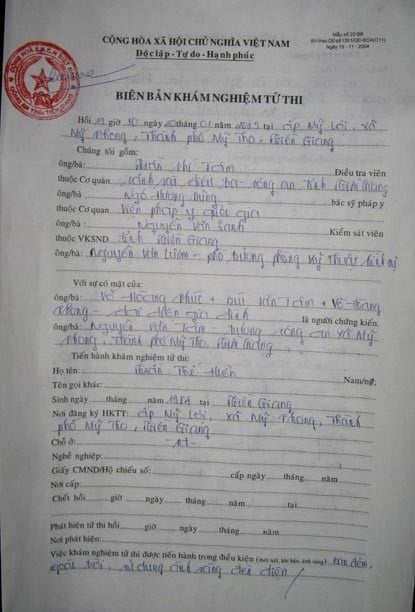 Mẫu số 20 BB
BH theo QĐ số 1351/QĐ-BCA(C11)
Ngày 18 - 11 - 2004
CỘNG HÒA XÃ HỘI CHỦ NGHĨA VIỆT NAM
Độc lập - Tự do - Hạnh phúc
BIÊN BẢN KHÁM NGHIỆM TỬ THI
Hồi 19 giờ 10 ngày 10 tháng 01 năm 2015 tại ấp Mỹ Lợi, xã
Mỹ Phong, Thành phố Mỹ Tho, Tiền Giang
Chúng tôi gồm:
ông/bà: Thị Tám Điều tra viên
thuộc Cơ quan cảnh sát điều tra - công an tỉnh Tiền Giang
ông/bà: Ngô bác sỹ pháp y
thuộc Cơ quan Viện pháp y quốc gia
ông/bà: Nguyễn Văn Kiểm sát viên
thuộc VKSND tỉnh Tiền Giang
ông/bà: Nguyễn Văn - phó trưởng phòng kỹ thuật hình sự
Với sự có mặt của:
ông/bà: Võ Hoàng Phúc + Bùi Văn Tám + Võ Hoàng
- đại diện gia đình là người chứng kiến.
ông/bà: Nguyễn Văn Tám - trưởng công an xã Mỹ
Phong, Thành phố Mỹ Tho, Tiền Giang
Tiến hành khám nghiệm tử thi:
Họ tên: Thế Hiền Nam/nữ;
Tên gọi khác:
Sinh ngày tháng năm 1984 tại Tiền Giang
Nơi đăng ký HKTT: ấp Mỹ Lợi, xã Mỹ Phong, Thành
phố Mỹ Tho, Tiền Giang
Chỗ ở: -nt-
Nghề nghiệp:
Giấy CMND/Hộ chiếu số: cấp ngày tháng năm
Nơi cấp:
Chết hồi giờ ngày tháng năm tại
Phát hiện tử thi hồi giờ ngày tháng năm
Nơi phát hiện:
Việc khám nghiệm tử thi được tiến hành trong điều kiện (thời tiết, khí hậu, ánh sáng) ban đêm,
ngoài trời, sử dụng ánh sáng đèn điện